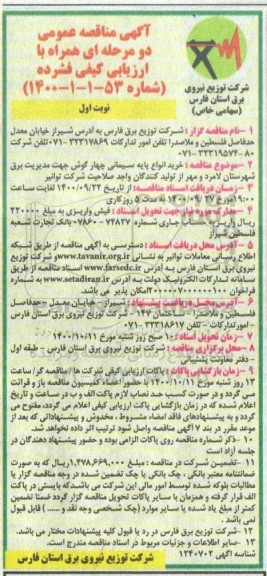 آگهی مناقصه عمومی
دو مرحله ای همراه با
ارزیابی کیفی فشرده
(شماره ۵۳-۱-۱-۱۴۰۰)
نوبت اول
شرکت توزیع نیروی
برق استان فارس
(سهامی خاص)
۱-نام مناقصه گزار : شرکت توزیع برق فارس به آدرس شیراز خیابان معدل
حدفاصل فلسطین و ملاصدرا تلفن امور تدارکات ۳۲۳۱۷۸۶۹-۰۷۱ تلفن شرکت
۸۰-۳۲۳۱۹۵۷۴-۰۷۱
۲-موضوع مناقصه : خرید انواع پایه سیمانی چهار گوش جهت مدیریت برق
شهرستان لامرد و مهر از تولید کنندگان واجد صلاحیت شرکت توانیر
۳- زمان دریافت اسناد مناقصه: از تاریخ ۱۴۰۰/۰۹/۲۲ لغایت ساعت
۱۹:۰۰ مورخ ۱۴۰۰/۰۹/۲۷ به مدت ۵ روز کاری
۴- مدارک مورد نیاز جهت تحویل اسناد : فیش واریزی به مبلغ ۲۲۰۰۰۰
ریال واریز به حساب جاری شماره ۷۴۸۲۷-۰۷۸۶۰ بانک تجارت شعبه
فلسطین شیراز
۵- آدرس محل دریافت اسناد : دسترسی به آگهی مناقصه از طریق شبکه
اطلاع رسانی معاملات توانیر به نشانی www.tavanir.org.ir و شرکت توزیع
نیروی برق استان فارس به آدرس www.farsedc.ir اسناد مناقصه از طریق
سامانه تدارکات الکترونیک دولت به آدرس www.setadiran.ir به شماره
فراخوان امکان پذیر می باشد.
۶- آدرس محل دریافت پیشنهاد : شیراز - خیابان معدل - حدفاصل
فلسطین و ملاصدرا - ساختمان ۱۴۷ - شرکت توزیع برق استان فارس
- امور تدارکات - تلفن ۳۲۳۱۸۶۱۷-۰۷۱
۷- زمان تحویل اسناد : ۱۰ صبح روز شنبه مورخ ۱۴۰۰/۱۰/۱۱
۸- محل برگزاری مناقصه : شرکت توزیع نیروی برق استان فارس - طبقه اول
- دفتر معاونت پشتیبانی
۹- زمان بازگشایی پاکات : پاکات ارزیابی کیفی شرکت ها / مناقصه گر/ ساعت
۱۳ روز شنبه مورخ ۱۴۰۰/۱۰/۱۱ با حضور اعضاء کمیسیون مناقصه باز و قرائت
می گردد و در صورت کسب حد نصاب لازم پاکت الف و ب در ساعت و تاریخ
اعلام شده که در زمان بازگشایی پاکت ارزیابی کیفی اعلام می گردد، مفتوح می
گردد و به پیشنهادهای فاقد امضاء، مشروط، مخدوش و پیشنهاداتی که بعد از
موعد مقرر در بند ۷ آگهی مناقصه واصل شود ترتیب اثر داده نخواهد شد.
۱۰ -ذکر شماره مناقصه روی پاکات الزامی بوده و حضور پیشنهاد دهندگان در
جلسه آزاد است
۱۱ -تضمین شرکت در مناقصه : مبلغ ۱,۴۷۸,۶۶۹,۰۰۰ ریال که به صورت
ضمانتنامه معتبر بانکی ، چک بانکی یا چک تضمین شده در وجه مناقصه گزار یا
مطالبات بلوکه شده توسط امور مالی این شرکت می باشد که بایستی در پاکت
الف قرار گرفته و همزمان با سایر پاکات تحویل مناقصه گزار گردد ضمنا تضمین
کمتر از مبلغ یاد شده یا سایر موارد (چک شخصی وجه نقد و ..... ) قابل قبول
نمی باشد .
۱۲ - شرکت توزیع برق فارس در رد یا قبول کلیه پیشنهادات مختار می باشد.
۱۳ -سایر اطلاعات و جزئیات مربوط در اسناد مناقصه مندرج است.
شناسه آگهی ۱۲۴۰۷۰۲
شرکت توزیع نیروی برق استان فارس